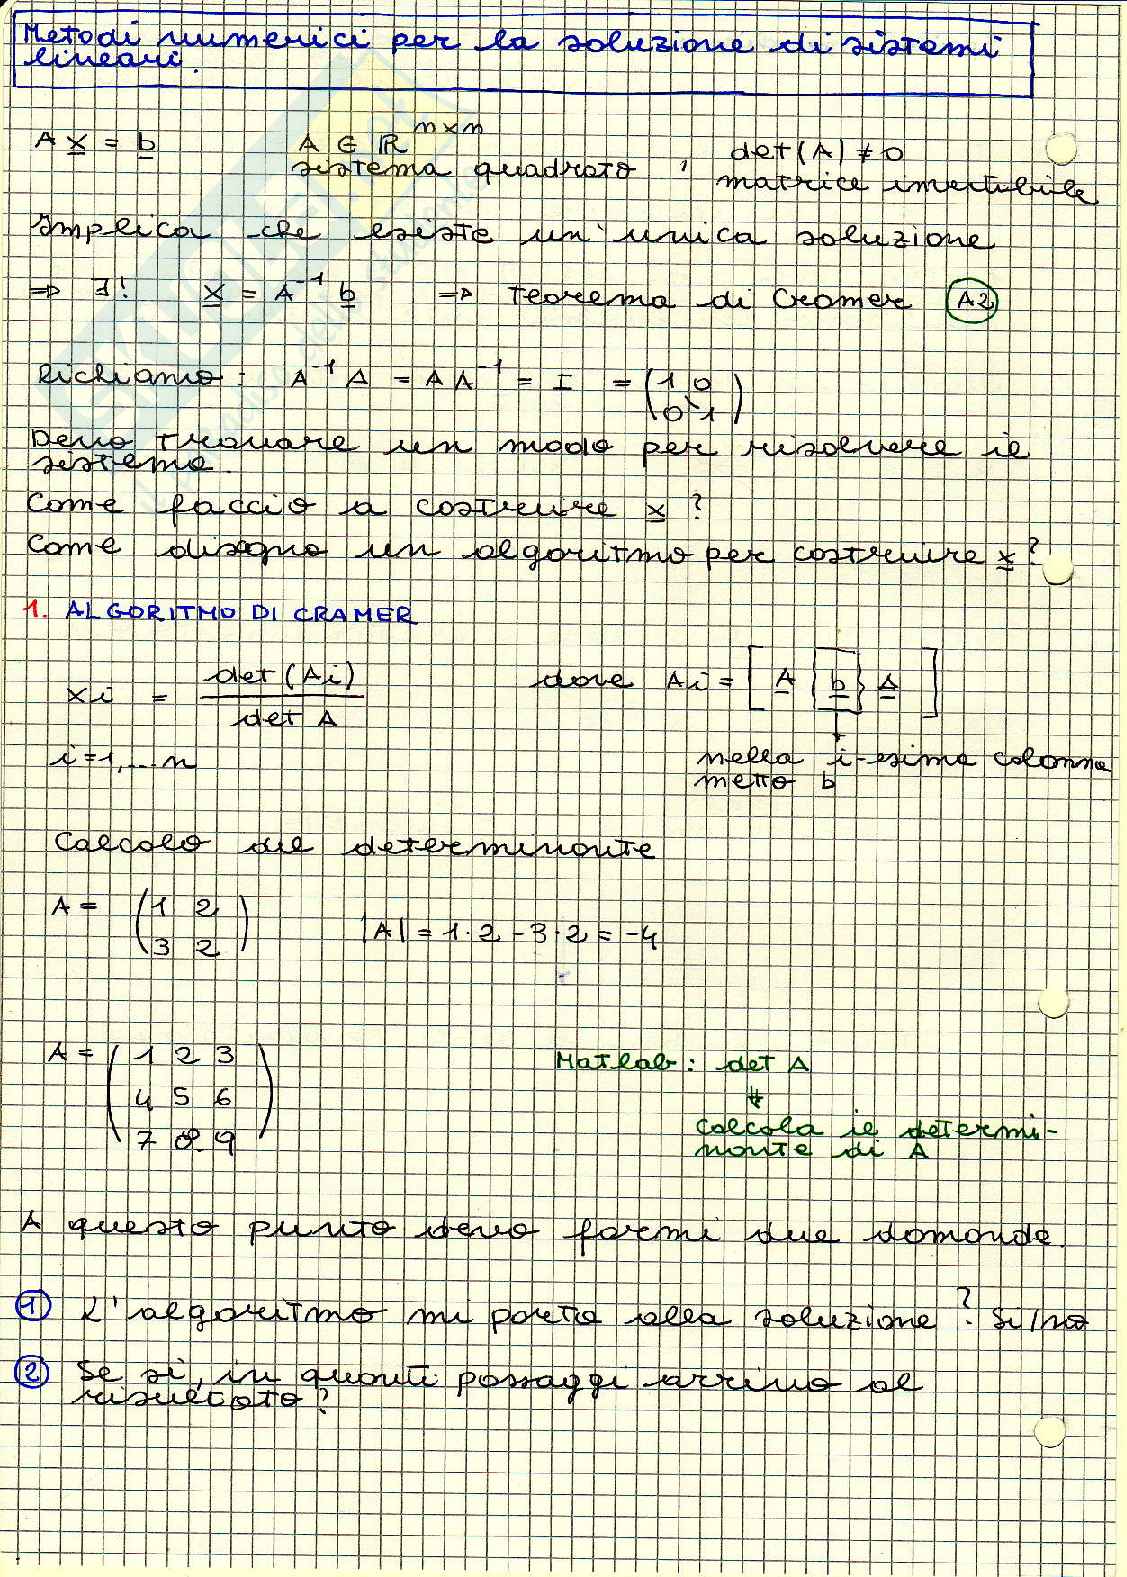 Metodi numerici per la soluzione di sistemi
lineari.
A x = b    A ∈ ℝ^(n×n)    det(A) ≠ 0
sistema quadrato , matrice invertibile
Implica che esiste un'unica soluzione
⇒ ∃! x = A⁻¹ b ⇒ Teorema di Cramer A2
Richiamo: A⁻¹ A = A A⁻¹ = I = (1 0
0 1)
Devo trovare un modo per risolvere il
sistema.
Come faccio a costruire x?
Come disegno un algoritmo per costruire x?
1. ALGORITMO DI CRAMER
xi = det (Ai) / det A    dove Ai = [ A | b | A ]
i=1,...n    nella i-esima colonna
metto b
Calcolo del determinante
A = (1 2
3 2)    |A| = 1·2 - 3·2 = -4
A = ( 1 2 3    Matlab: det A
4 5 6    calcola il determi-
7 8 9 )    nante di A
A questo punto devo farmi due domande.
1 L'algoritmo mi porta alla soluzione? Si/no
2 Se si, in quanti passaggi arrivo al
risultato?